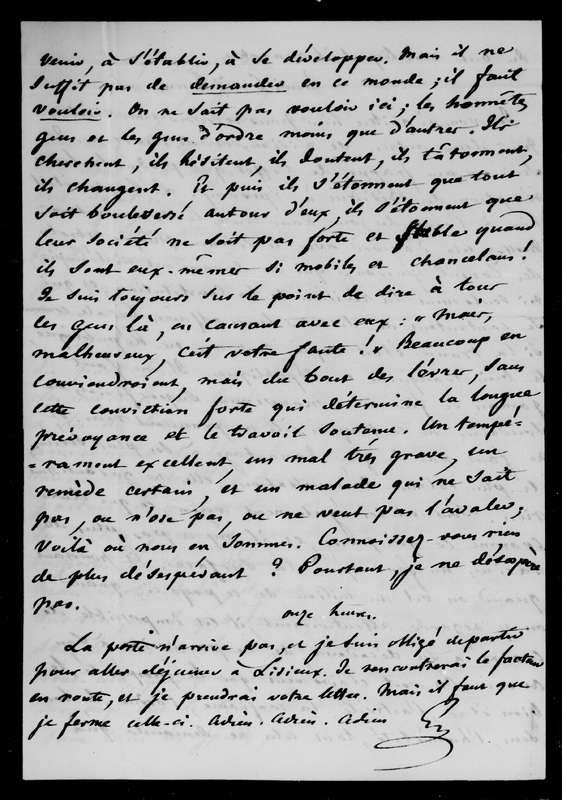 venir, à s'établir, à se développer. Mais il ne
suffit pas de demander en ce monde ; il faut
vouloir. On ne sait pas vouloir ici ; les honnêtes
gens et les gens d'ordre moins que d'autres. Ils
cherchent, ils hésitent, ils doutent, ils tâtonnent,
ils changent. Et puis ils s'étonnent que tout
soit bouleversé autour d'eux, ils s'étonnent que
leur société ne soit pas forte et stable quand
ils sont eux-mêmes si mobiles et chancelans !
Je suis toujours sur le point de dire à tous
ces gens là, en causant avec eux : « Mais,
malheureux, c'est votre faute ! » Beaucoup en
conviendroient, mais du bout des lèvres, sans
cette conviction forte qui détermine la longue
prévoyance et le travail soutenu. Un tempé-
-rament excellent, un mal très grave, un
remède certain, et un malade qui ne sait
pas, ou n'ose pas, ou ne veut pas l'avaler ;
voilà où nous en sommes. Connoissez-vous rien
de plus désespérant ? Pourtant, je ne désespère
pas.
onze heures.
La poste n'arrive pas, et je suis obligé de partir
pour aller déjeuner à Lisieux. Je rencontrerai le facteur
en route, et je prendrai votre lettre. Mais il faut que
je ferme celle-ci. Adieu. Adieu. Adieu